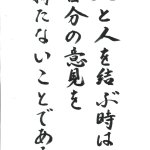 と人を結ぶ時は
自分の意見を
持たないことである